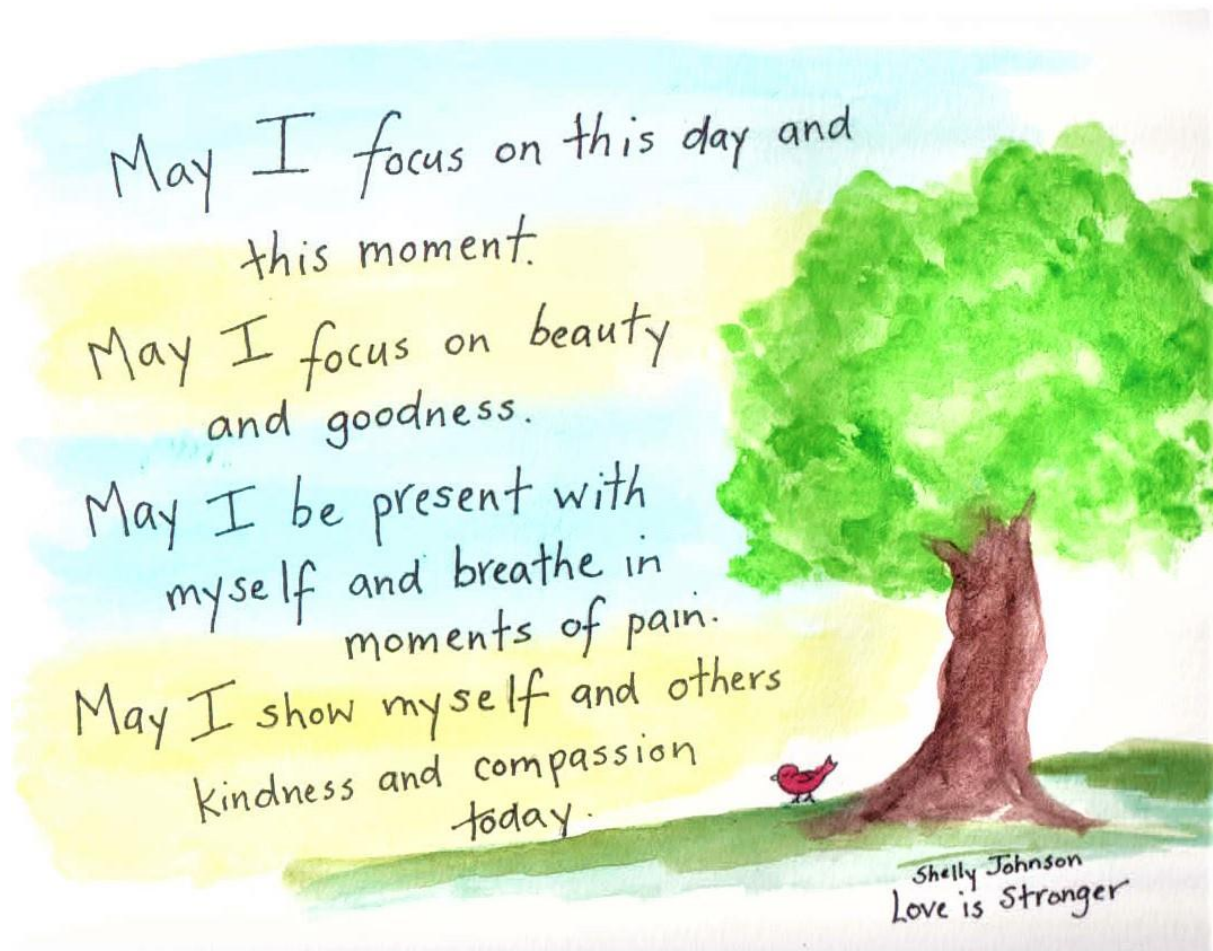 May I focus on this day and
this moment.
May I focus on beauty
and goodness.
May I be present with
myself and breathe in
moments of pain.
May I show myself and others
kindness and compassion
today.
Shelly Johnson
Love is Stronger